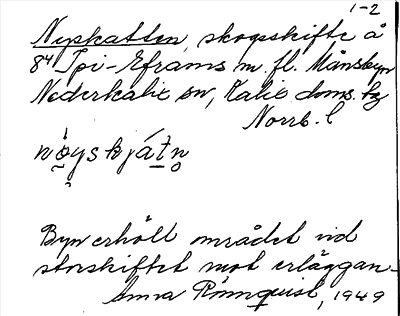 1-2
Nyskatten, skogsskifte å
84 Spi-Eframs m. fl. Månsbyn
Nederkalix sn, Kalix doms. tg
Norrb. l
Byn erhöll området vid
storskiftet mot erläggan-
Anna Rönnquist, 1949